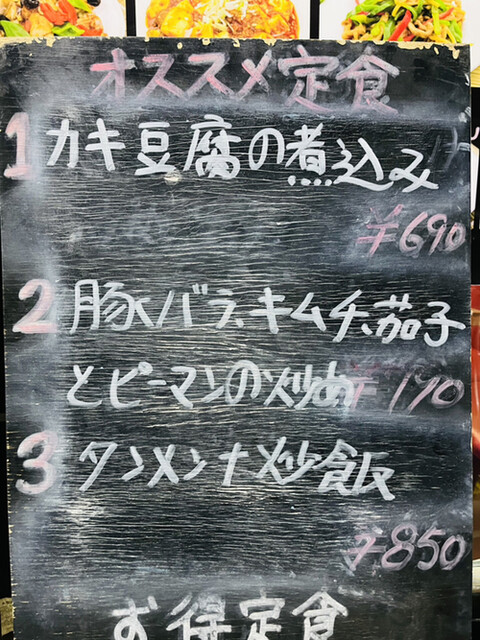 オススメ定食
1 カキ豆腐の煮込み
¥690
2 豚バラ、キムチ、茄子
とピーマンの炒め
3 タンメン+炒飯
¥850
お得定食